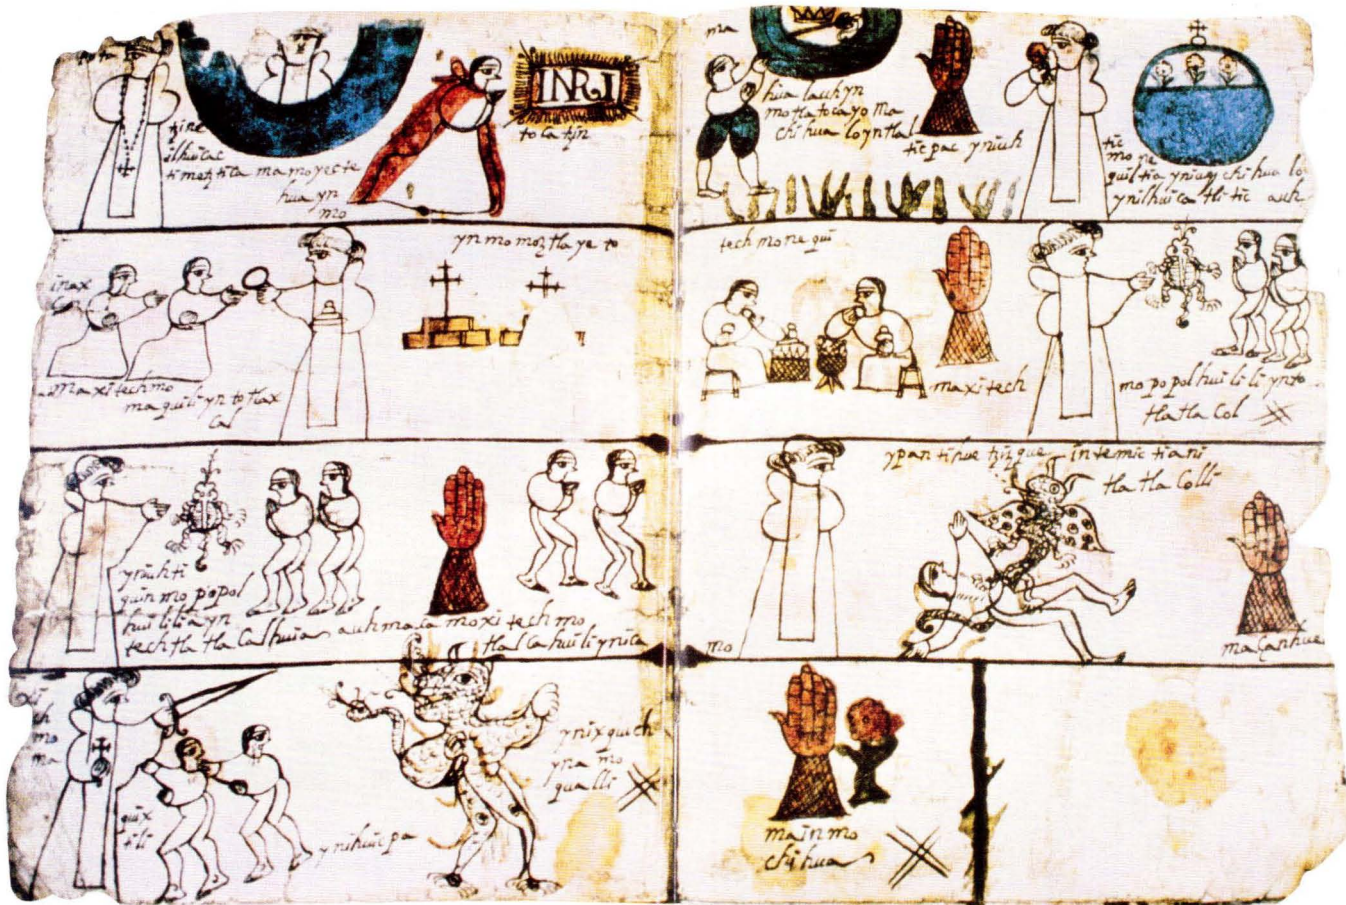 tzine
ilhuicac
timetztica ma moyecte
hua yn
mo
INRI
tocatzin
ma
hua lauh yn
motlatocayo ma
chihua loyn tlal
ticpac yniuh
tic
mo ne
quiltia yniuh chihua lo
ynilhuicatli tic auh
ynmomoztlaye to
maxitechmo
maquiliyn totlax
cal
techmonequi
maxitech
mopopolhuililiynto
tlatlacol
yniuhti
quinmopopol
huililiayn
techtlatlacalhuia auhmaca moxitechmo
tlalcahuiliynica
mo
ypantihuetzizque intemictiani
tlatlacolli
maçanhue
ch
mo
ma
quix
tili
ynihuicpa
ynixquich
ynamo
qualli
mainmo
chihua